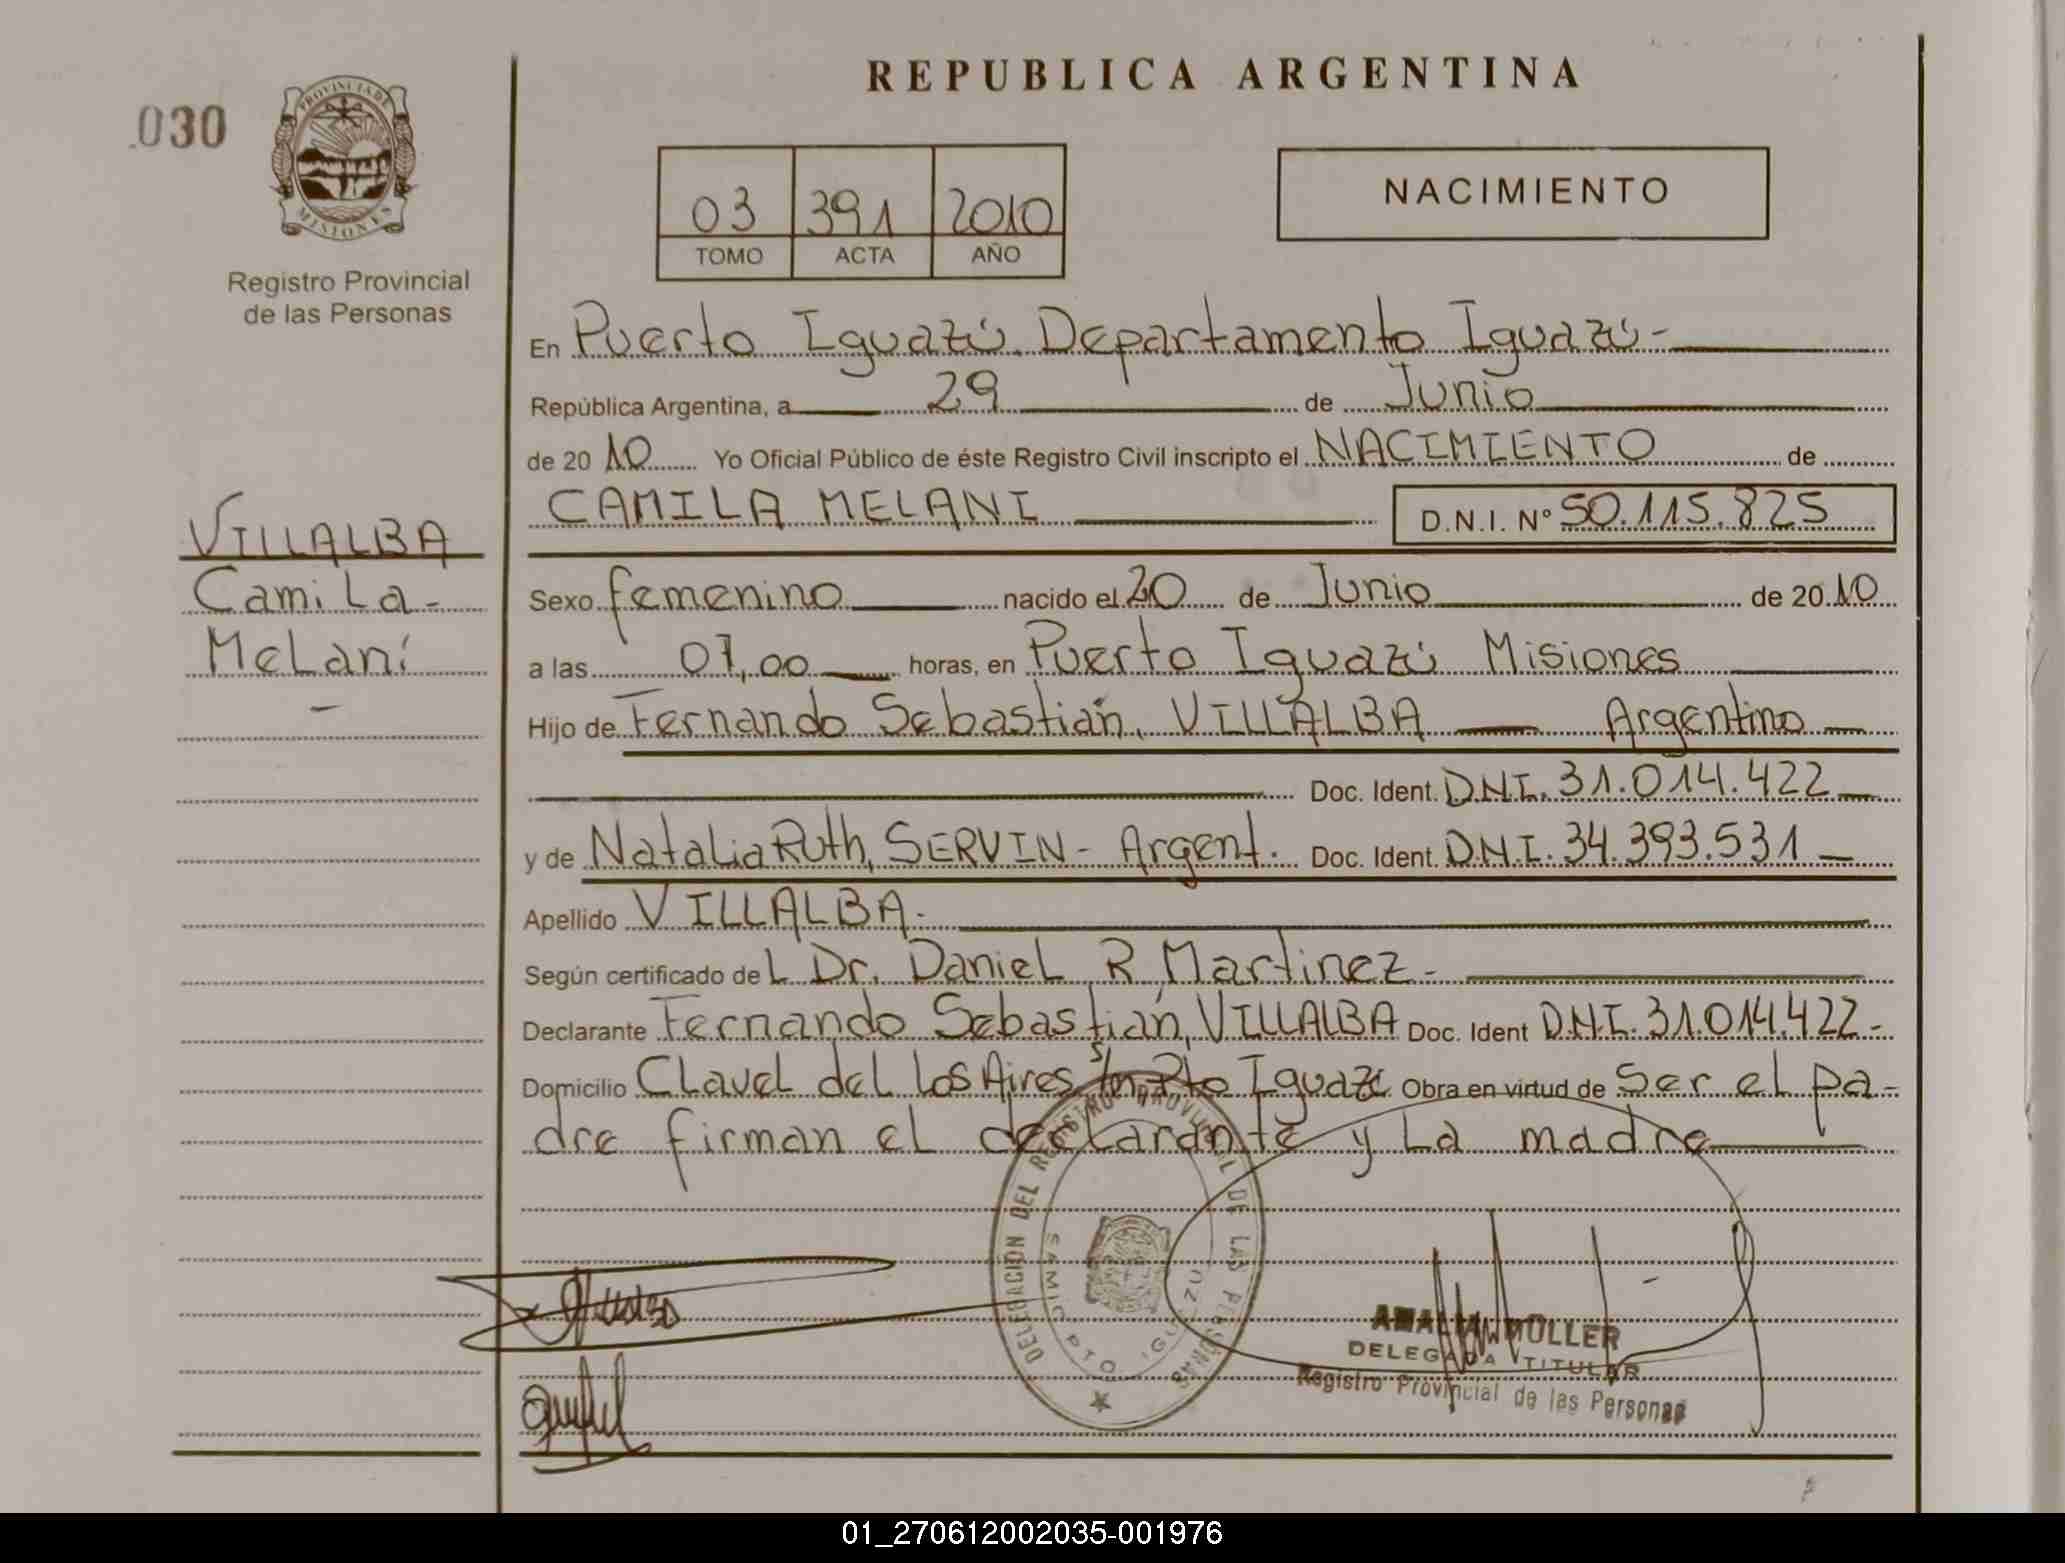 REPUBLICA ARGENTINA
030
PROVINCIA DE
MISIONES
Registro Provincial
de las Personas
03 391 2010
TOMO ACTA AÑO
NACIMIENTO
En Puerto Iguazú. Departamento Iguazú-
República Argentina, a 29 de Junio
de 2010 Yo Oficial Público de éste Registro Civil inscripto el NACIMIENTO de
CAMILA MELANI D.N.I. Nº 50.115.825
VILLALBA
Camila-
Melaní
-
Sexo femenino nacido el 20 de Junio de 2010
a las 07,00 horas, en Puerto Iguazú Misiones
Hijo de Fernando Sebastián, VILLALBA Argentino
Doc. Ident. D.N.I. 31.014.422
y de Natalia Ruth, SERVIN - Argent. Doc. Ident. D.N.I. 34.393.531
Apellido VILLALBA.
Según certificado del Dr. Daniel R Martinez-
Declarante Fernando Sebastián, VILLALBA Doc. Ident D.N.I. 31.014.422-
Domicilio Clavel del Los Aires s/n Pto Iguazú Obra en virtud de Ser el pa-
dre firman el declarante y la madre
DELEGACIÓN DEL REGISTRO PROVINCIAL DE LAS PERSONAS
PTO. IGUAZU
AMALIA MULLER
DELEGADA TITULAR
Registro Provincial de las Personas
01_270612002035-001976